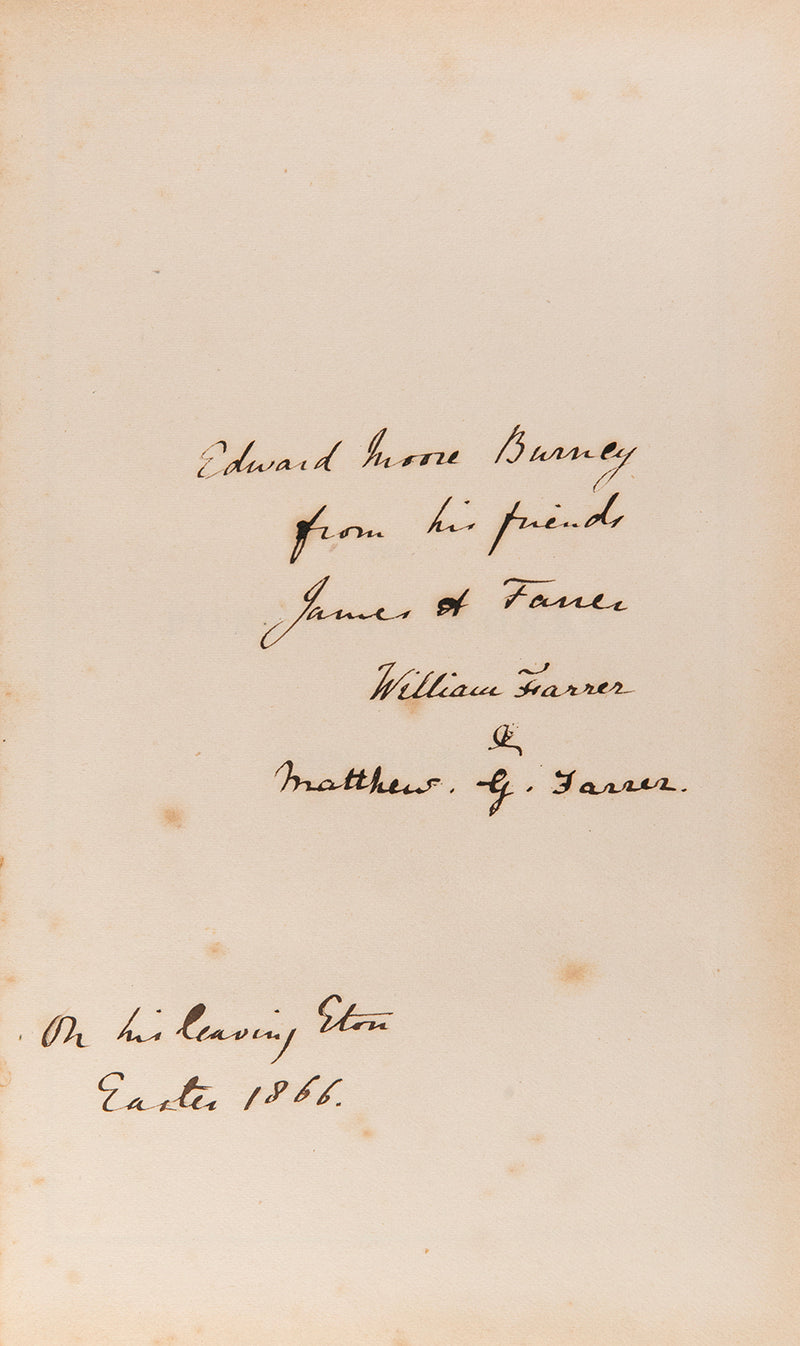 Edward Moore Burney
from his friends
James A Farrer
William Farrer
&
Matthew. G. Farrer.
On his leaving Eton
Easter 1866.